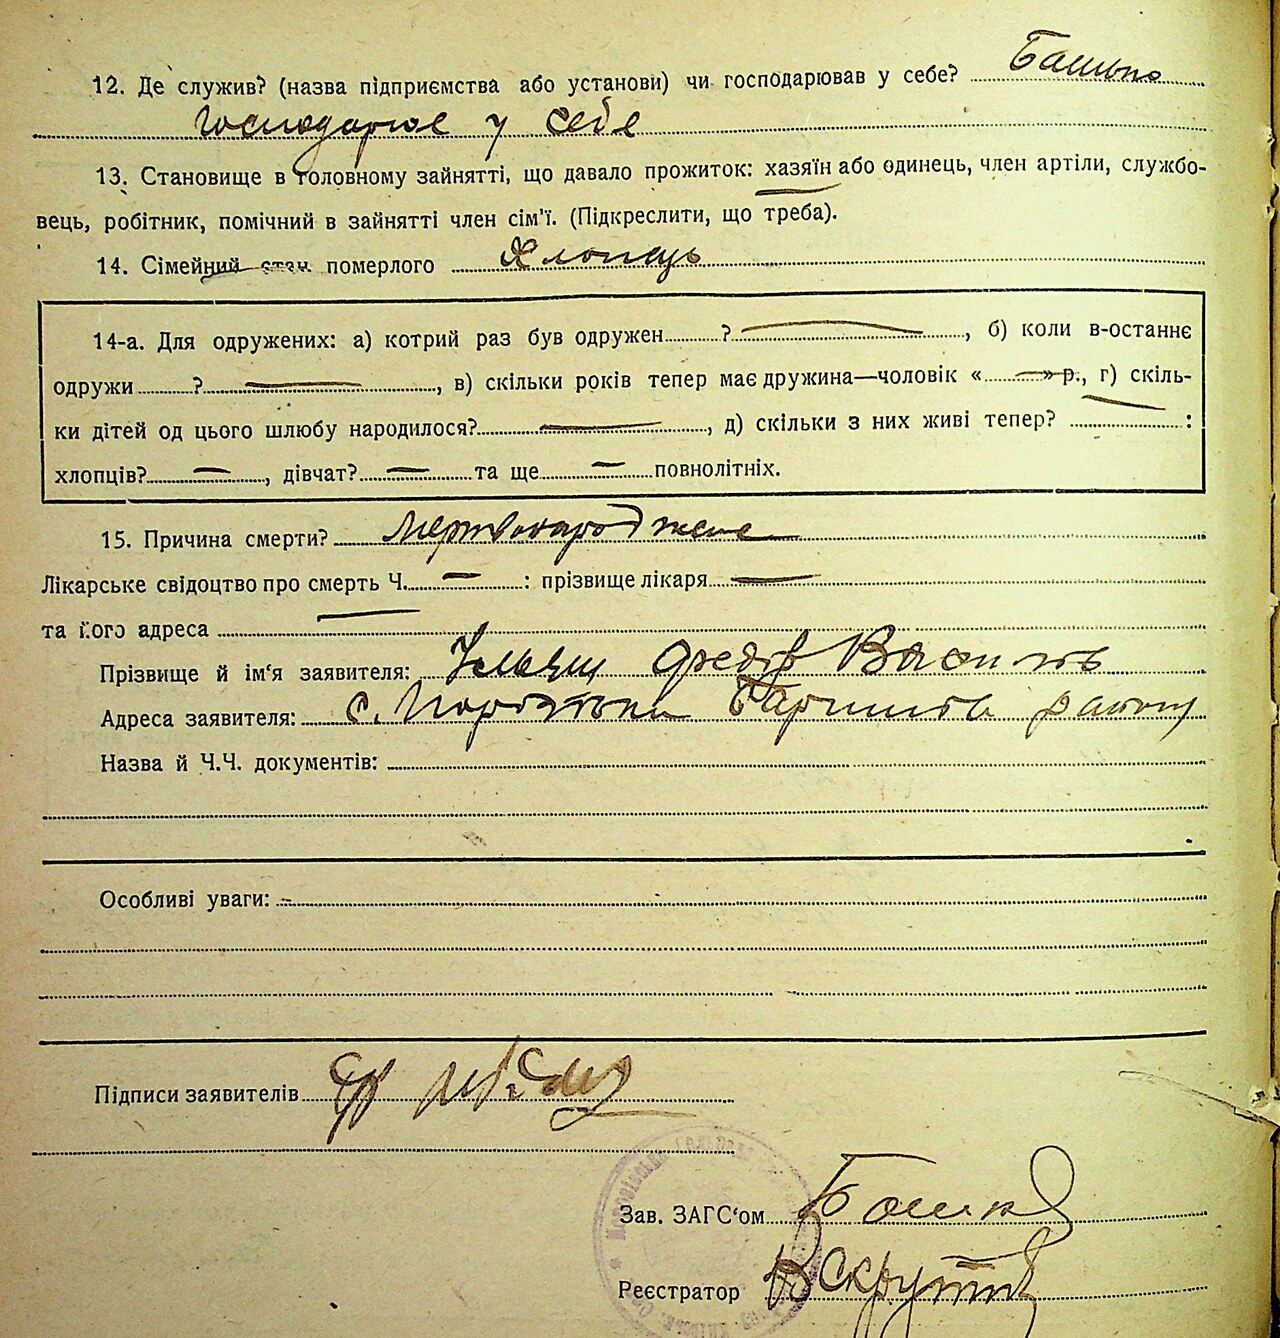 12. Де служив? (назва підприємства або установи) чи господарював у себе? Батько
господарює у себе
13. Становище в головному зайнятті, що давало прожиток: хазяїн або одинець, член артіли, службо-
вець, робітник, помічний в зайнятті член сім'ї. (Підкреслити, що треба).
14. Сімейний стан померлого Хлопець
14-а. Для одружених: а) котрий раз був одружен ? —, б) коли в-останнє
одружи ? —, в) скільки років тепер має дружина—чоловік « — » р., г) скіль-
ки дітей од цього шлюбу народилося? —, д) скільки з них живі тепер? — :
хлопців? —, дівчат? — та ще — повнолітніх.
15. Причина смерти? Мертвонароджене
Лікарське свідоцтво про смерть Ч. — : прізвище лікаря —
та його адреса —
Прізвище й ім'я заявителя: Федір Василів
Адреса заявителя: с. району
Назва й Ч.Ч. документів:
Особливі уваги: -
Підписи заявителів
Зав. ЗАГС'ом
Реєстратор